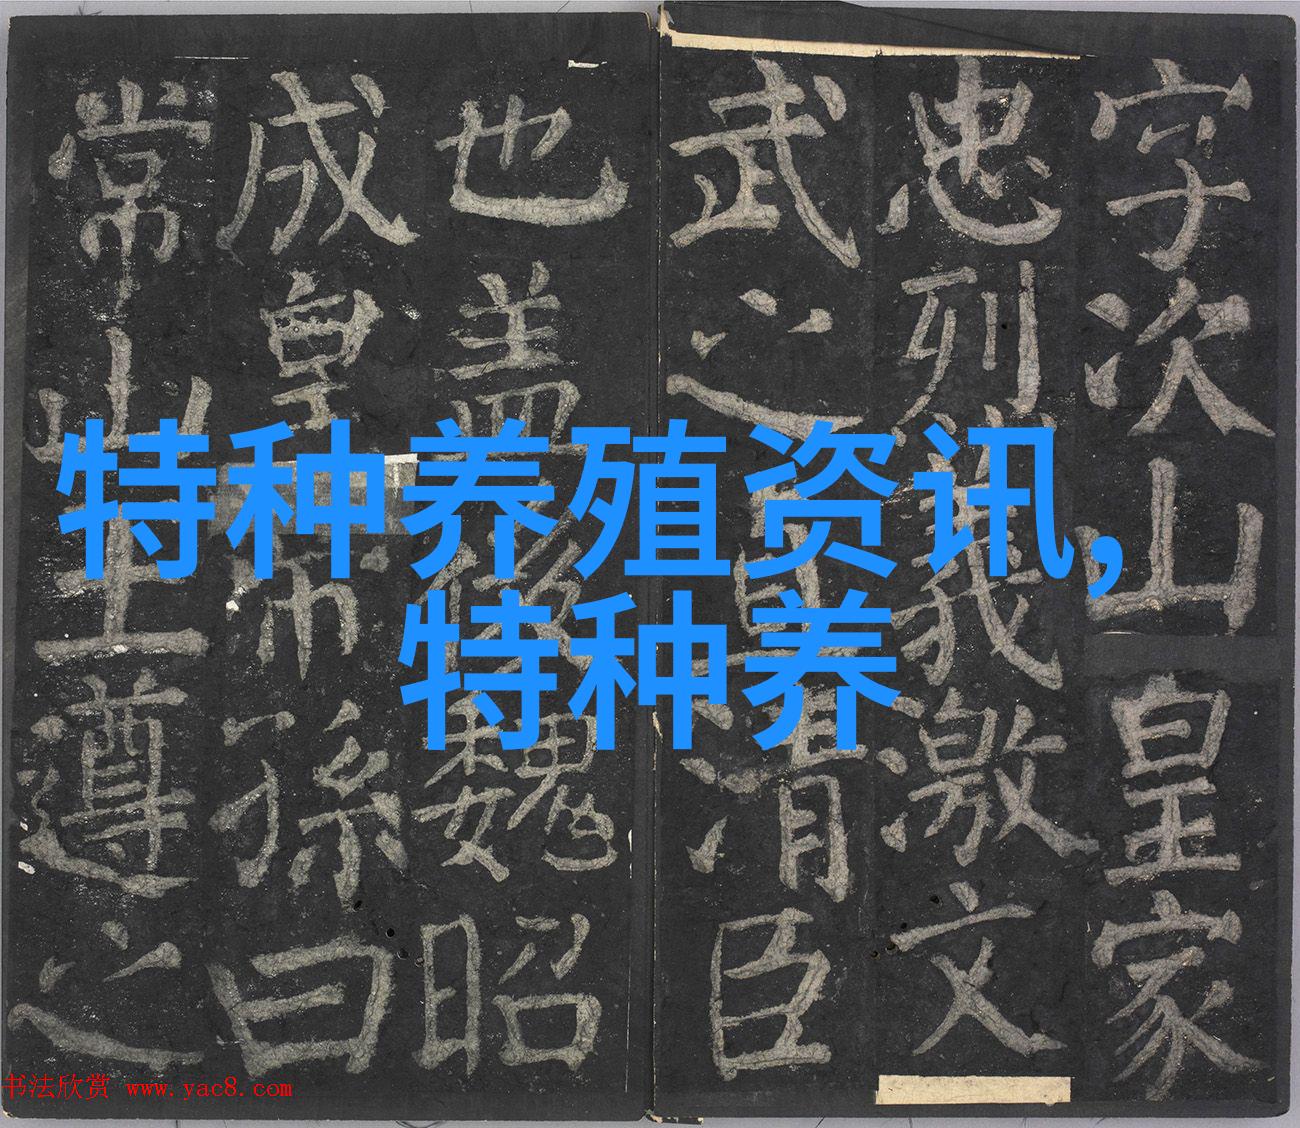 字次山皇家
忠烈義激文
武之直清臣
也盖後魏昭
成皇帝孫曰
常山王遵之
特种养殖资讯,
特种养
书法欣赏 www.yac8.com